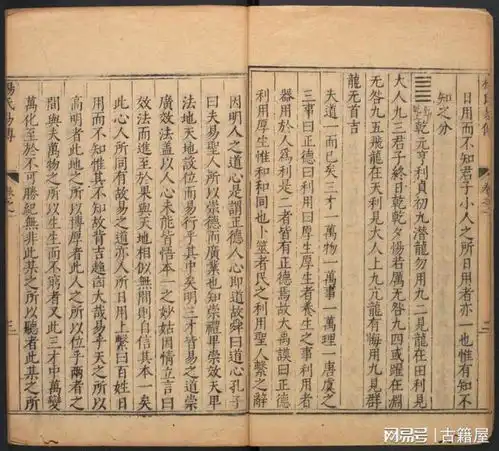 日用而不知君子小人之所日用者亦一也惟有知不
知之分
䷀乾元亨利貞初九潛龍勿用九二見龍在田利見
大人九三君子終日乾乾夕惕若厲无咎九四或躍在淵
无咎九五飛龍在天利見大人上九亢龍有悔用九見群
龍无首吉
夫道一而已矣三才一萬物一萬事一萬理一唐虞之
三事曰正德曰利用曰厚生厚生者養生之事利用者
器用於人爲利是二者皆有正德焉故大禹謨曰正德
利用厚生惟和和同也卜筮者民之利用聖人繫之辭
因明人之道心是謂正德人心即道故舜曰道心孔子
曰夫易聖人所以崇德而廣業也知崇禮卑崇效天卑
法地天地設位而易行乎其中矣明三才皆易之道崇
廣效法蓋以人心未能皆悟本一之妙姑因情立言曰
效法而進至於果與天地相似無間則自信其本一矣
此心人所同有故易之道亦人所日用上繫曰百姓日
用而不知惟其不知故背吉趨凶大哉易乎天之所以
高明者此地之所以博厚者此人之所以位乎兩者之
間與夫萬物之所以生生而不窮者又此三才中萬變
萬化至於不可勝紀無非此某之所以聽者此某之所
楊氏易傳
卷之一
三
网易号 | 古籍屋